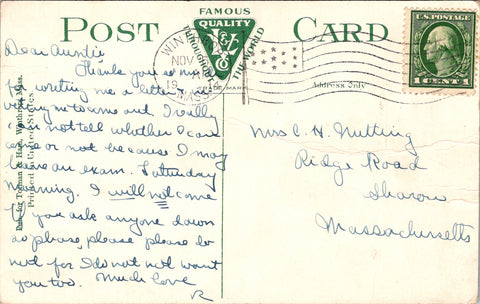 FAMOUS
QUALITY
POST CARD
THROUGHOUT THE WORLD
TRADE MARK
WIN
NOV
19
MASS.
U.S. POSTAGE
1 CENT 1
Address Only
Printed in United States.
Pub. for & Hart, Winthrop, Mass.
Dear Auntie
Thank you so much
for writing me a letter
me to come out. I really
can not tell whether I can
come or not because I may
have an exam. Saturday
morning. I will not come
if you ask anyone down
so please, please please do
not for I do not want
you too. Much love
R
Mrs C. H. Nutting
Ridge Road
Sharon
Massachusetts